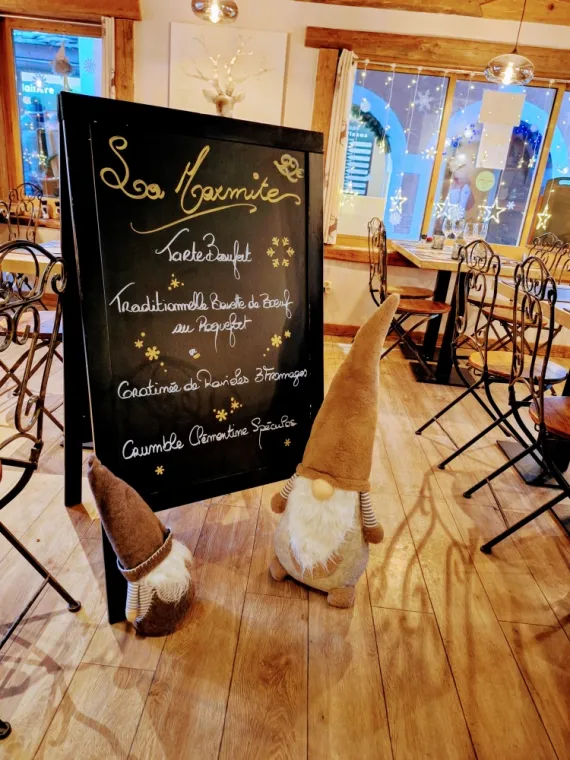 La Marmite
Tarte Beaufort
Traditionnelle Bavette de Boeuf
au Roquefort
Gratinée de Ravioles 3 Fromages
Crumble Clémentine Spéculos